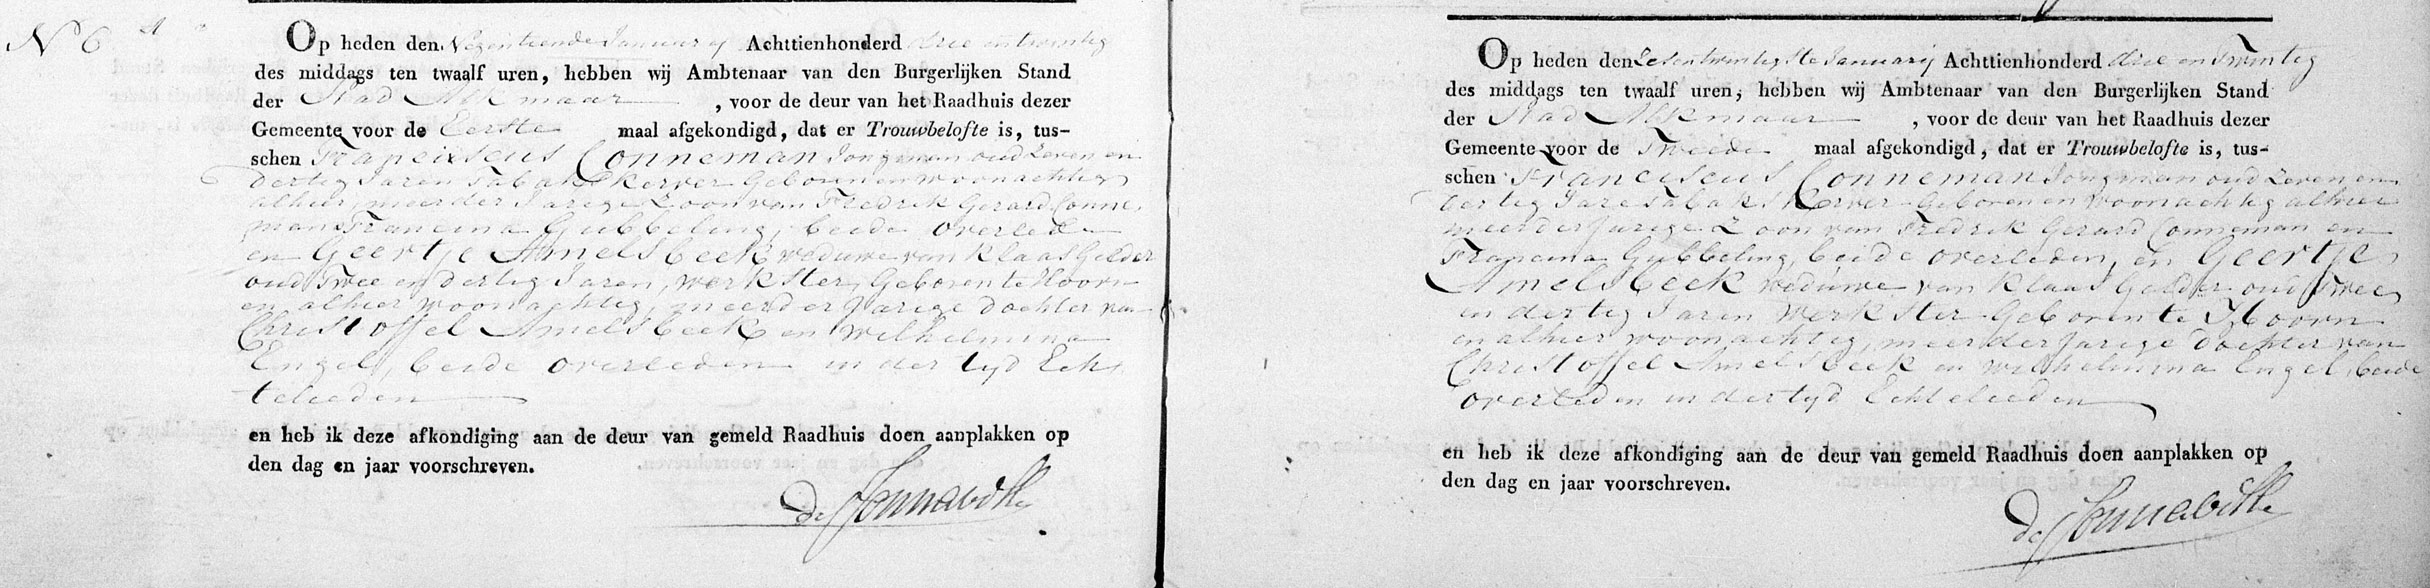 N 6
Op heden den Negentiende Januarij Achttienhonderd drie en twintig
des middags ten twaalf uren, hebben wij Ambtenaar van den Burgerlijken Stand
der Stad Alkmaar , voor de deur van het Raadhuis dezer
Gemeente voor de Eerste maal afgekondigd, dat er Trouwbelofte is, tus-
schen Franciscus Conneman Jongman oud Zeven en
dertig Jaren tabakskerver Geboren en woonachtig
alhier, meerder Jarige Zoon van Fredrik Gerard Conne,
man Francina Gubbeling, beide overlede
en Geertje Amelsbeek weduwe van Klaas Gelder
oud Twee en dertig Jaren, werkster, Geboren te Hoorn
en alhier woonachtig, meerder Jarige dochter van
Christoffel Amelsbeek en Wilhelmina
Engel, beide overleden in der tyd Ech
telieden
en heb ik deze afkondiging aan de deur van gemeld Raadhuis doen aanplakken op
den dag en jaar voorschreven.
Op heden den Zesentwintigste Januarij Achttienhonderd drie en Twintig
des middags ten twaalf uren, hebben wij Ambtenaar van den Burgerlijken Stand
der Stad Alkmaar , voor de deur van het Raadhuis dezer
Gemeente voor de Tweede maal afgekondigd, dat er Trouwbelofte is, tus-
schen Franciscus Conneman Jongman oud Zeven en
dertig Jare tabakskerver Geboren en woonachtig alhier
meerder Jarige Zoon van Fredrik Gerard Conneman en
Francina Gubbeling, beide overleden, en Geertje
Amelsbeek weduwe van Klaas Gelder oud Twee
en dertig Jaren werkster Geboren te Hoorn
en alhier woonachtig, meerder Jarige dochter van
Christoffel Amelsbeek en Wilhelmina Engel, beide
overleden in der tyd Echtelieden
en heb ik deze afkondiging aan de deur van gemeld Raadhuis doen aanplakken op
den dag en jaar voorschreven.